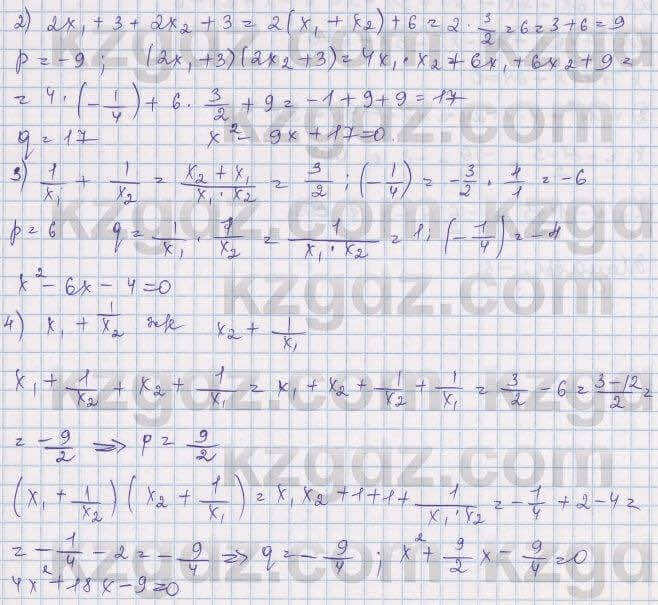 2) 2x₁ + 3 + 2x₂ + 3 = 2(x₁ + x₂) + 6 = 2 · 3/2 = 6 = 3 + 6 = 9
p = -9; (2x₁ + 3)(2x₂ + 3) = 4x₁ · x₂ + 6x₁ + 6x₂ + 9 =
= 4 · (-1/4) + 6 · 3/2 + 9 = -1 + 9 + 9 = 17
q = 17 x² - 9x + 17 = 0.
3) 1/x₁ + 1/x₂ = (x₂ + x₁)/(x₁ · x₂) = 3/2 : (-1/4) = -3/2 · 4/1 = -6
p = 6 q = 1/x₁ · 1/x₂ = 1/(x₁ · x₂) = 1 : (-1/4) = -4
x² - 6x - 4 = 0
4) x₁ + 1/x₂ жк x₂ + 1/x₁
x₁ + 1/x₂ + x₂ + 1/x₁ = x₁ + x₂ + 1/x₂ + 1/x₁ = 3/2 - 6 = (3-12)/2 =
= -9/2 ⇒ p = 9/2
(x₁ + 1/x₂)(x₂ + 1/x₁) = x₁x₂ + 1 + 1 + 1/(x₁ · x₂) = -1/4 + 2 - 4 =
= -1/4 - 2 = -9/4 ⇒ q = -9/4; x² + 9/2 x - 9/4 = 0
4x² + 18x - 9 = 0
kzgdz.com